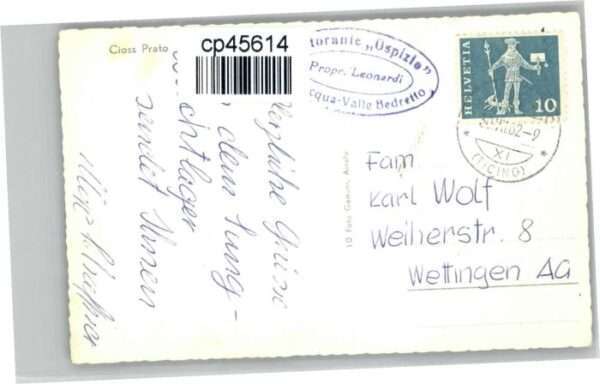 Cioss Prato
cp45614
torante „Ospizio"
Propr. Leonardi
cqua-Valle Bedretto
HELVETIA
10
62-9
XI
(TICINO)
Herzliche Grüsse
dem Jung-
chtlager
sendet Ihnen
10 Foto Gansuni, Airolo
Fam
Karl Wolf
Weiherstr. 8
Wettingen AG